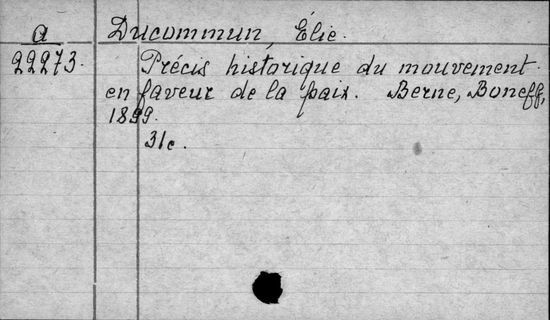 a Ducommun, Élie.
22273. Précis historique du mouvement
en faveur de la paix. Berne, Boneff,
1899.
31c.